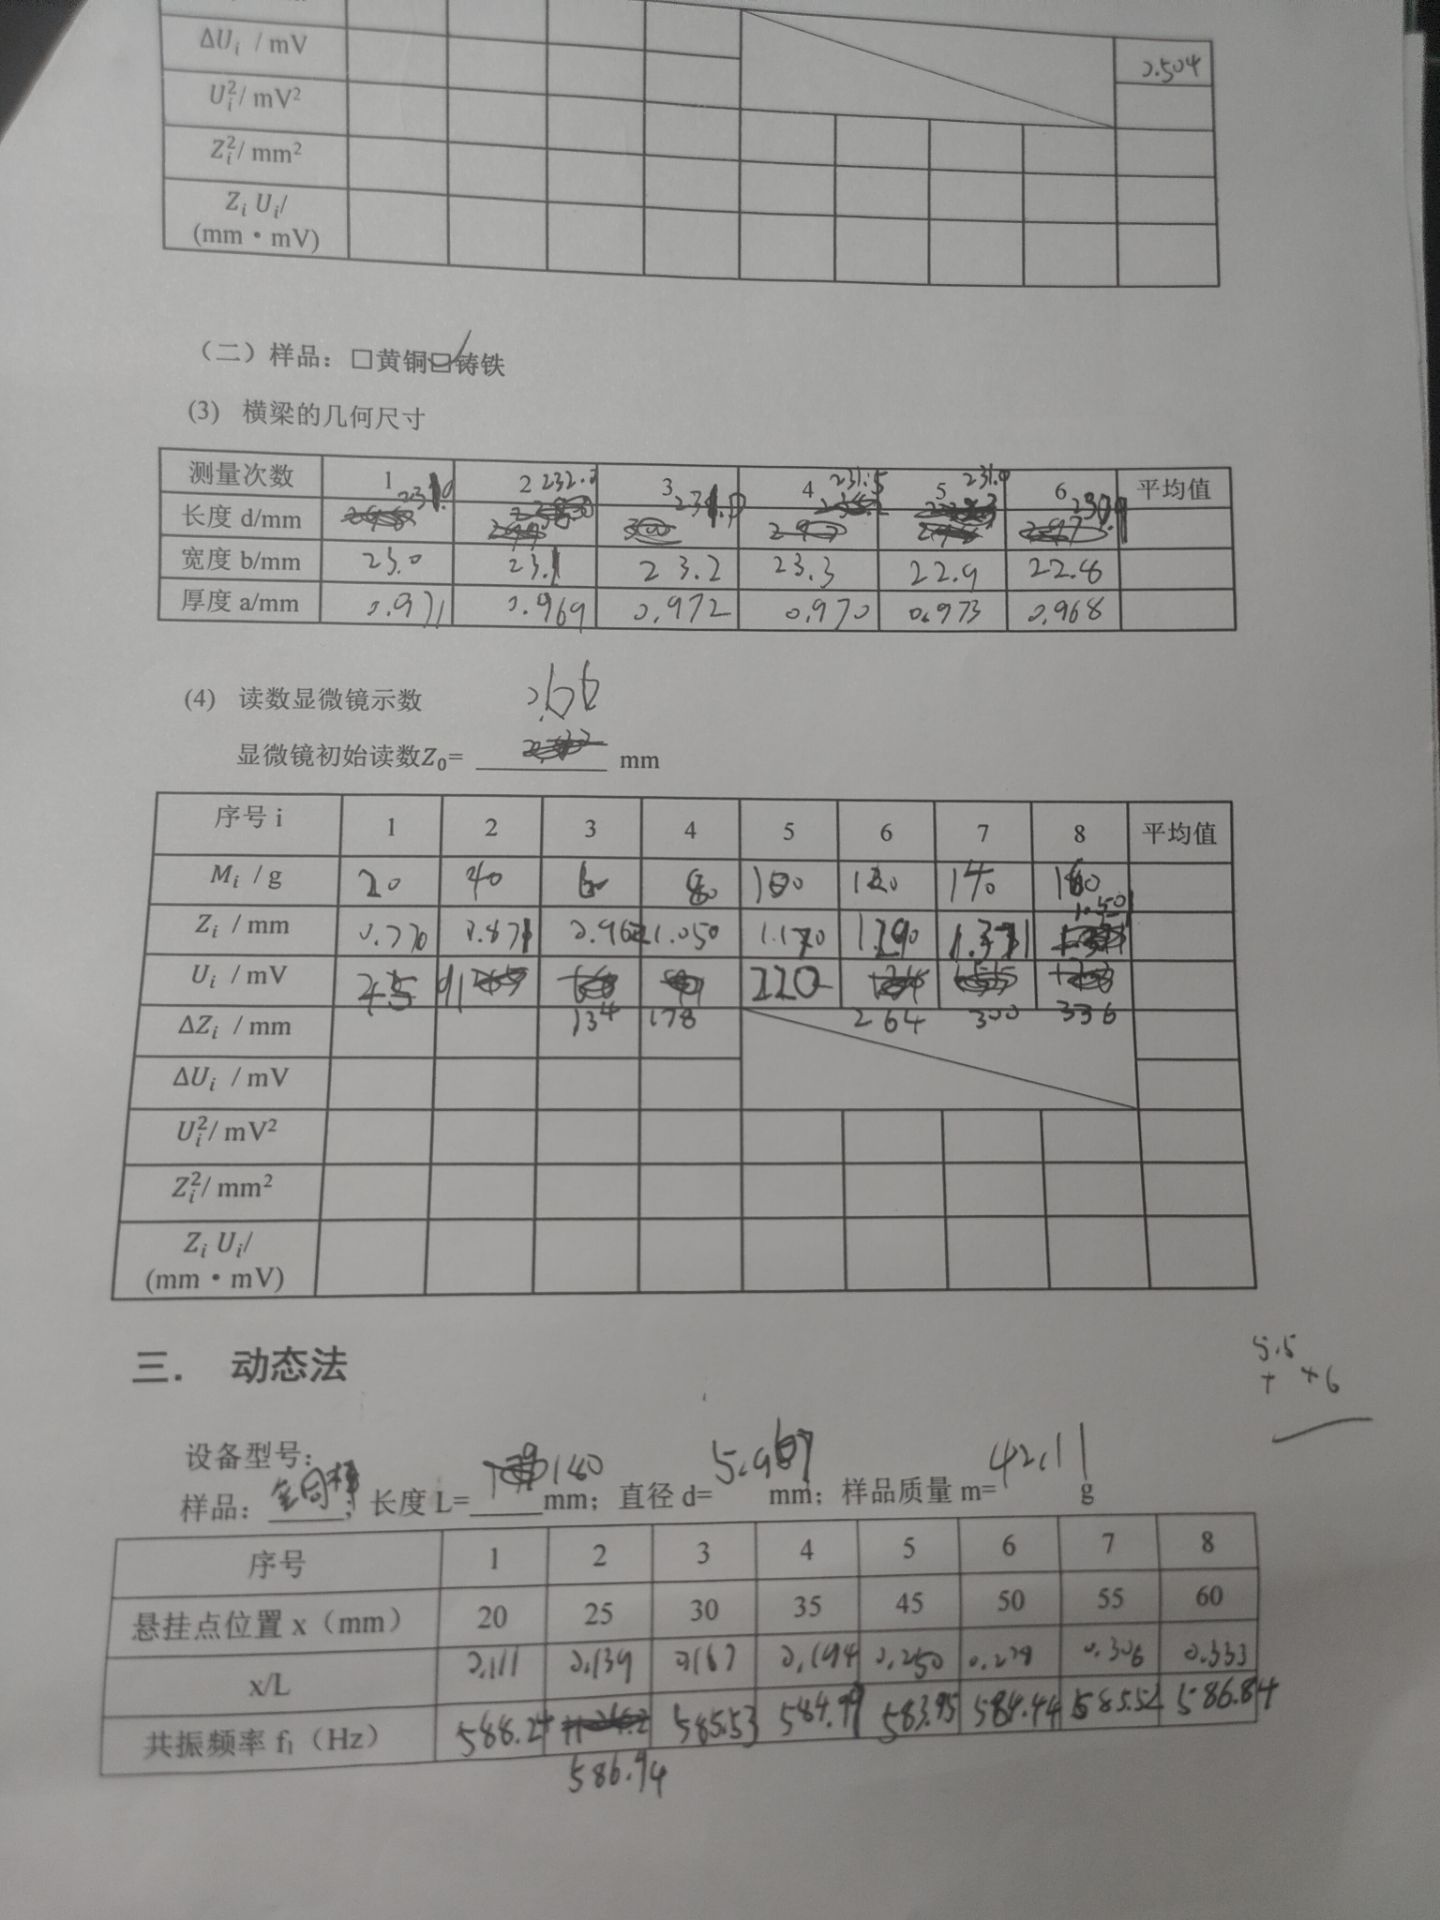 ΔU_i / mV 0.504
U_i²/ mV²
Z_i²/ mm²
Z_i U_i/
(mm·mV)
（二）样品：□黄铜☑铸铁
(3) 横梁的几何尺寸
测量次数 1 2 3 4 5 6 平均值
长度 d/mm 232.0 231.5 231.0
宽度 b/mm 23.0 23.1 23.2 23.3 22.9 22.8
厚度 a/mm 0.971 0.969 0.972 0.970 0.973 0.968
(4) 读数显微镜示数
0.66
显微镜初始读数Z₀= mm
序号 i 1 2 3 4 5 6 7 8 平均值
M_i / g 20 40 60 80 100 120 140 160
Z_i / mm 0.770 0.871 0.962 1.050 1.170 1.290 1.371 1.501
U_i / mV 45 91 134 178 220 264 300 336
ΔZ_i / mm
ΔU_i / mV
U_i²/ mV²
Z_i²/ mm²
Z_i U_i/
(mm·mV)
三． 动态法
5.5
+ +6
设备型号：
样品：金同棒；长度 L=180mm；直径 d=5.967 mm；样品质量 m=42.11 g
序号 1 2 3 4 5 6 7 8
悬挂点位置 x（mm） 20 25 30 35 45 50 55 60
x/L 0.111 0.139 0.167 0.194 0.250 0.278 0.306 0.333
共振频率 f₁（Hz） 588.27 586.94 585.53 584.99 583.95 584.44 585.52 586.84